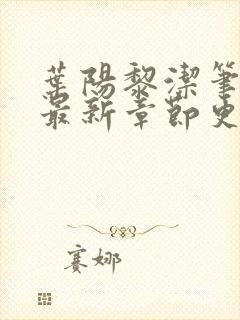 葉陽黎潔筆
最新章節更
賽娜